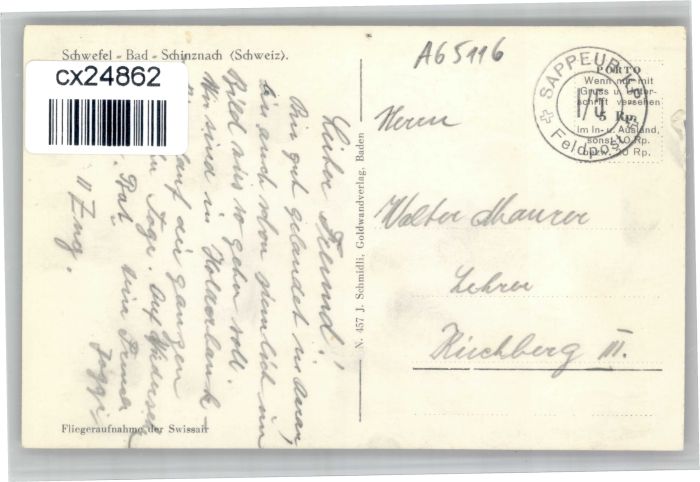 Schwefel - Bad - Schinznach (Schweiz).
cx24862
A65116
SAPPEUR
Feldpost
I/5
PORTO
Wenn nur mit
Gruss u. Unter-
schrift versehen
5 Rp.
im In- u. Ausland,
sonst 10 Rp.
20 Rp.
Herrn
Walter Maurer
Lehrer
Kirchberg III.
N. 457 J. Schmidli, Goldwandverlag, Baden
Lieber Freund!
Bin gut gelandet in
bin auch schon ziemlich im
Bild wie es gehn soll.
Wir sind in Holderbank
auf der ganzen
Tage. Auf Wiederseh
Bat. dein Freund
II Zug. Joggi
Fliegeraufnahme der Swissair